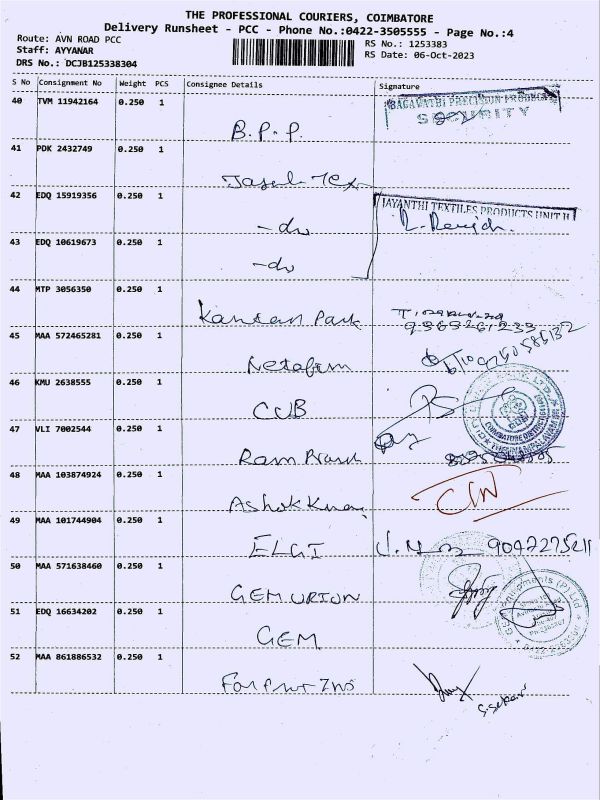 THE PROFESSIONAL COURIERS, COIMBATORE
Delivery Runsheet - PCC - Phone No.:0422-3505555 - Page No.:4
Route: AVN ROAD PCC
Staff: AYYANAR
DRS No.: DCJB125338304
RS No.: 1253383
RS Date: 06-Oct-2023
S No Consignment No Weight PCS Consignee Details Signature
40 TVM 11942164 0.250 1
B.P.P.
BAGAVATHI PRECISION PRODUCTS
SECURITY
41 PDK 2432749 0.250 1
42 EDQ 15919356 0.250 1
-do
JAYANTHI TEXTILES PRODUCTS UNIT II
43 EDQ 10619673 0.250 1
-do
44 MTP 3056350 0.250 1
Park
45 MAA 572465281 0.250 1
Netafim
46 KMU 2638555 0.250 1
CUB
47 VLI 7002544 0.250 1
Ram
48 MAA 103874924 0.250 1
Ashok Kumar
49 MAA 101744904 0.250 1
ELGI
9042275211
50 MAA 571638460 0.250 1
GEM
51 EDQ 16634202 0.250 1
GEM
52 MAA 861886532 0.250 1